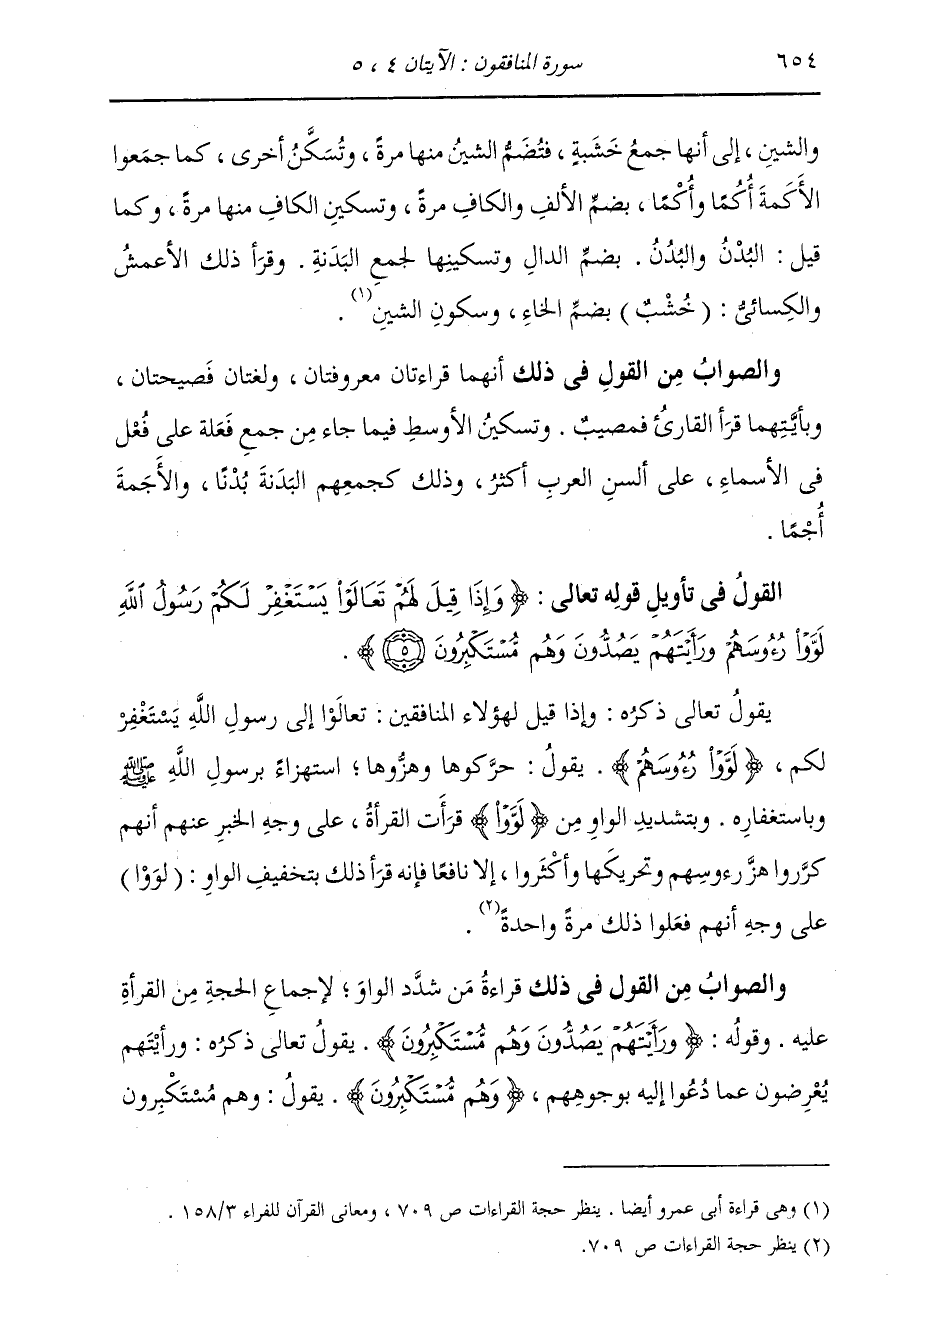 ٦٥٤ سورة المنافقون : الآيتان ٤ ، ٥
والشينِ ، إلى أنها جمعُ خَشَبةٍ ، فتُضَمُّ الشينُ منها مرةً ، وتُسَكَّنُ أخرى ، كما جمَعوا
الأَكَمةَ أُكُمًا وأُكْمًا ، بضمِّ الألفِ والكافِ مرةً ، وتسكينِ الكافِ منها مرةً ، وكما
قيل : البُدْنُ والبُدُنُ . بضمِّ الدالِ وتسكينِها لجمعِ البَدَنةِ . وقرَأ ذلك الأعمشُ
والكِسائىُّ : ( خُشْبٌ ) بضمِّ الخاءِ ، وسكونِ الشينِ(١) .
والصوابُ مِن القولِ فى ذلك أنهما قراءتان معروفتان ، ولغتان فَصيحتان ،
وبأيَّتِهما قرَأ القارئُ فمصيبٌ . وتسكينُ الأوسطِ فيما جاء مِن جمعِ فَعَلة على فُعْل
فى الأسماءِ ، على ألسنِ العربِ أكثرُ ، وذلك كجمعِهم البَدَنةَ بُدْنًا ، والأَجَمةَ
أُجْمًا .
القولُ فى تأويلِ قولِه تعالى : ﴿ وَإِذَا قِيلَ لَهُمْ تَعَالَوْا۟ يَسْتَغْفِرْ لَكُمْ رَسُولُ ٱللَّهِ
لَوَّوْا۟ رُءُوسَهُمْ وَرَأَيْتَهُمْ يَصُدُّونَ وَهُم مُّسْتَكْبِرُونَ ٥ ﴾ .
يقولُ تعالى ذكرُه : وإذا قيل لهؤلاء المنافقين : تعالَوْا إلى رسولِ اللَّهِ يَسْتَغْفِرْ
لكم ، ﴿ لَوَّوْا۟ رُءُوسَهُمْ ﴾ . يقولُ : حرَّكوها وهزُّوها ؛ استهزاءً برسولِ اللَّهِ ﷺ
وباستغفارِه . وبتشديدِ الواوِ مِن ﴿ لَوَّوْا۟ ﴾ قرَأت القرأةُ ، على وجهِ الخبرِ عنهم أنهم
كرَّروا هزَّ رءوسِهم وتحريكَها وأكْثَروا ، إلا نافعًا فإنه قرَأ ذلك بتخفيفِ الواوِ : ( لوَوْا )
على وجهِ أنهم فعَلوا ذلك مرةً واحدةً(٢) .
والصوابُ مِن القولِ فى ذلك قراءةُ مَن شدَّد الواوَ ؛ لإجماعِ الحجةِ مِن القرأةِ
عليه . وقولُه : ﴿ وَرَأَيْتَهُمْ يَصُدُّونَ وَهُم مُّسْتَكْبِرُونَ ﴾ . يقولُ تعالى ذكرُه : ورأيْتَهم
يُعْرِضون عما دُعُوا إليه بوجوهِهم ، ﴿ وَهُم مُّسْتَكْبِرُونَ ﴾ . يقولُ : وهم مُسْتَكْبِرون
(١) وهى قراءة أبى عمرو أيضا . ينظر حجة القراءات ص ٧٠٩ ، ومعانى القرآن للفراء ١٥٨/٣ .
(٢) ينظر حجة القراءات ص ٧٠٩.